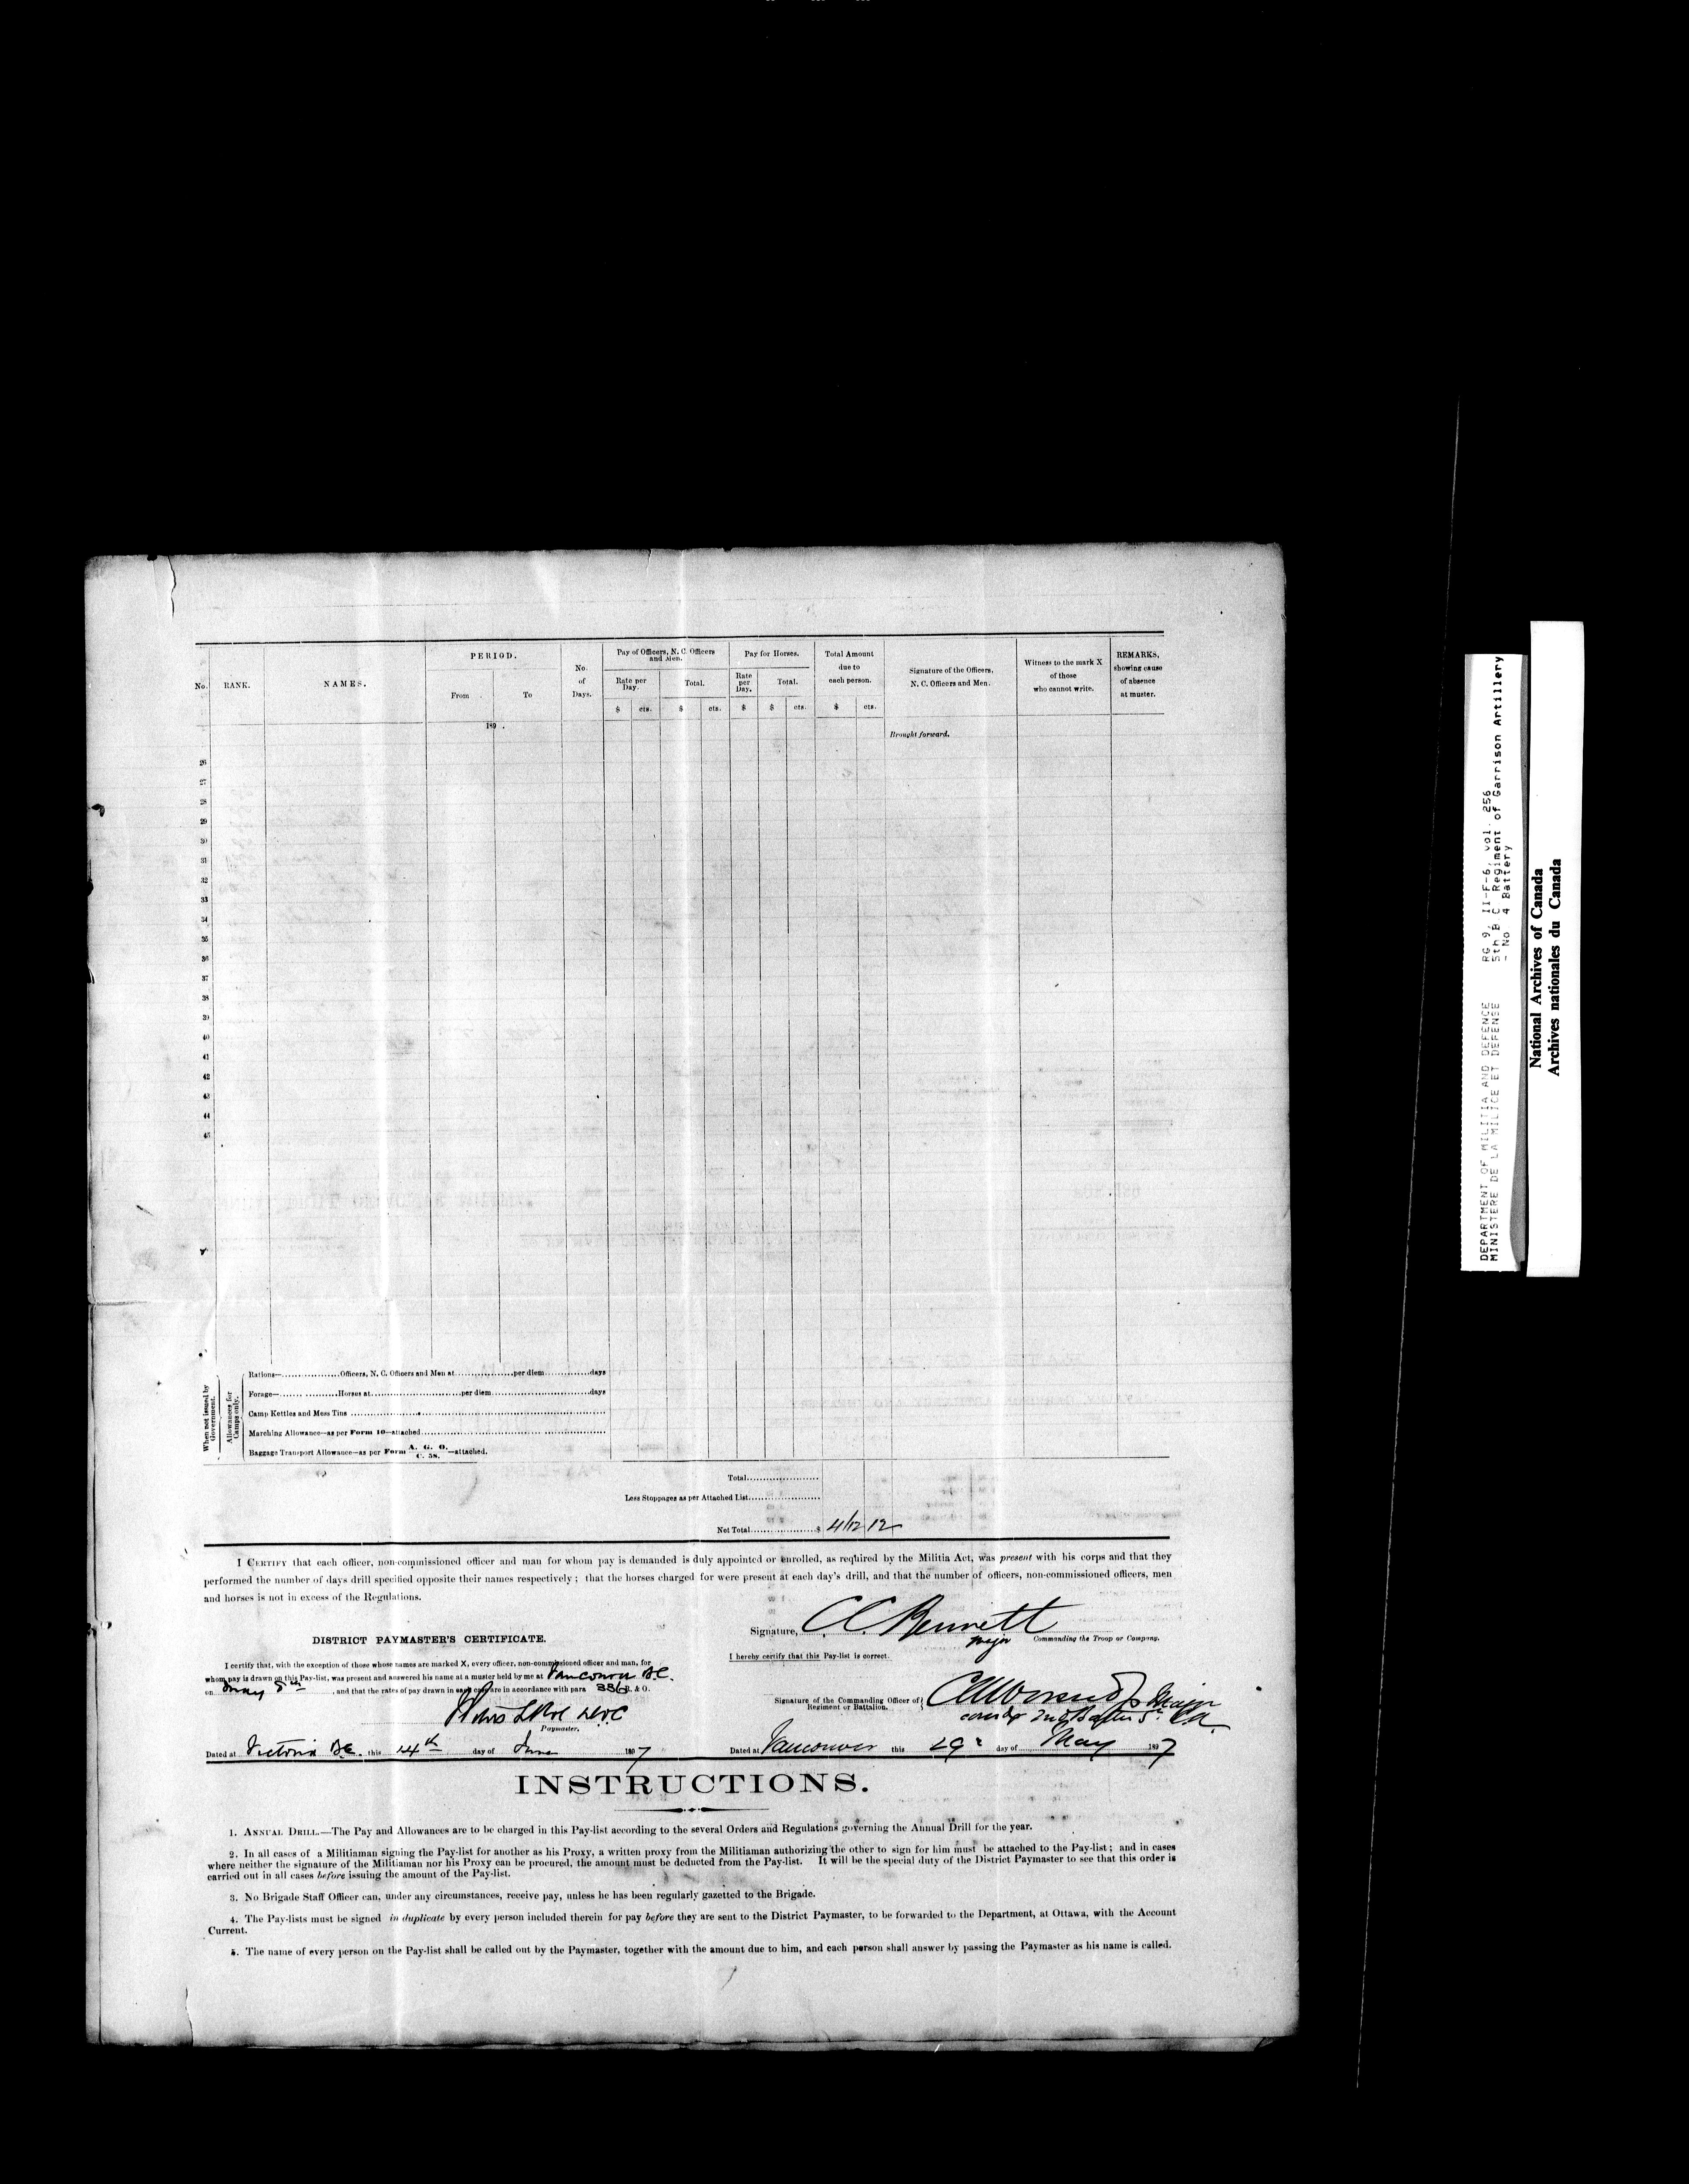 No.
RANK.
NAMES.
PERIOD.
From
To
No. of Days.
Pay of Officers, N. C. Officers and Men.
Rate per Day.
Total.
$ cts. $ cts.
Pay for Horses.
Rate per Day.
Total.
$ $ cts.
Total Amount due to each person.
$ cts.
Signature of the Officers, N. C. Officers and Men.
Witness to the mark X of those who cannot write.
REMARKS, showing cause of absence at muster.
189 .
Brought forward.
26
27
28
29
30
31
32
33
34
35
36
37
38
39
40
41
42
43
44
45
When not issued by Government.
Allowances for Camps only.
Rations—..................Officers, N. C. Officers and Men at..................per diem..............days
Forage—..................Horses at............................per diem..............................days
Camp Kettles and Mess Tins ..............................
Marching Allowance—as per Form 10—attached..............................
Baggage Transport Allowance—as per Form A. G. O. / C. 58. —attached.
Total......................
Less Stoppages as per Attached List......................
Net Total......................$ 412 12
I CERTIFY that each officer, non-commissioned officer and man for whom pay is demanded is duly appointed or enrolled, as required by the Militia Act, was present with his corps and that they
performed the number of days drill specified opposite their names respectively ; that the horses charged for were present at each day's drill, and that the number of officers, non-commissioned officers, men
and horses is not in excess of the Regulations.
Signature, CC Bennett
Major Commanding the Troop or Company.
DISTRICT PAYMASTER'S CERTIFICATE.
I certify that, with the exception of those whose names are marked X, every officer, non-commissioned officer and man, for
whom pay is drawn on this Pay-list, was present and answered his name at a muster held by me at Vancouver B.C.
on May 8th , and that the rates of pay drawn in each case are in accordance with para R. & O.
Paymaster.
Dated at Victoria B.C. this 14th day of June 1897
I hereby certify that this Pay-list is correct.
Signature of the Commanding Officer of Regiment or Battalion. Major
Dated at Vancouver this 29 day of May 1897
INSTRUCTIONS.
1. ANNUAL DRILL.—The Pay and Allowances are to be charged in this Pay-list according to the several Orders and Regulations governing the Annual Drill for the year.
2. In all cases of a Militiaman signing the Pay-list for another as his Proxy, a written proxy from the Militiaman authorizing the other to sign for him must be attached to the Pay-list ; and in cases
where neither the signature of the Militiaman nor his Proxy can be procured, the amount must be deducted from the Pay-list. It will be the special duty of the District Paymaster to see that this order is
carried out in all cases before issuing the amount of the Pay-list.
3. No Brigade Staff Officer can, under any circumstances, receive pay, unless he has been regularly gazetted to the Brigade.
4. The Pay-lists must be signed in duplicate by every person included therein for pay before they are sent to the District Paymaster, to be forwarded to the Department, at Ottawa, with the Account
Current.
5. The name of every person on the Pay-list shall be called out by the Paymaster, together with the amount due to him, and each person shall answer by passing the Paymaster as his name is called.
DEPARTMENT OF MILITIA AND DEFENCE RG 9, II-F-6, vol. 256
MINISTERE DE LA MILICE ET DEFENSE 5th B C Regiment of Garrison Artillery
- No 4 Battery
National Archives of Canada
Archives nationales du Canada